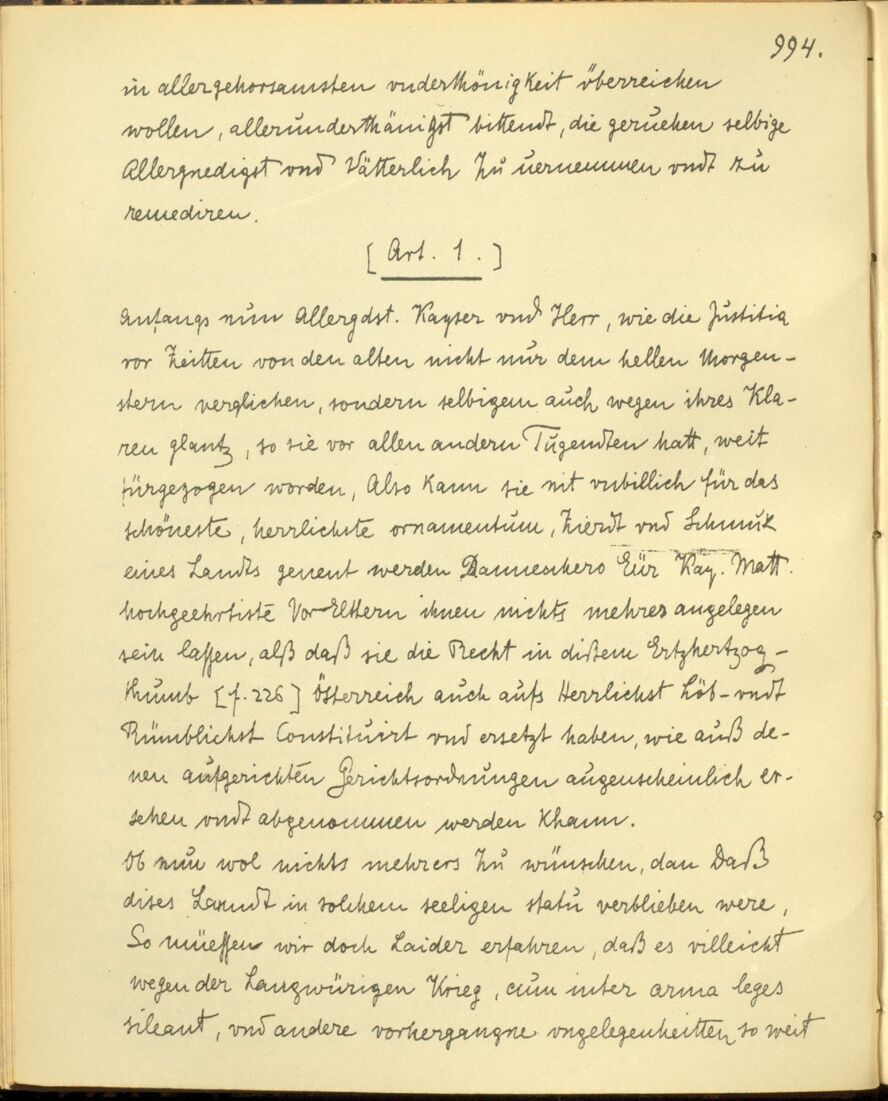 994.
in allergehorsamsten vnderthönigkeit öberreichen
wollen, allerunderthänigst bittendt, die geruehen selbige
Allergnedigst vnd Vätterlich zu uernemmen vndt zu
remediren.
[Art. 1.]
Anfangs nun Allergdst. Kayser vnd Herr, wie die Justitia
vor Zeitten von den alten nicht nur dem hellen Morgen-
stern verglichen, sondern selbigem auch wegen ihres Kla-
ren glantz, so sie vor allen andern Tugendten hatt, weit
fürgezogen worden, Also kann sie nit vnbillich für das
schöneste, herrlichste ornamentum, Zierdt vnd Schmuk
eines Landts genent werden Dannenhero Eür Kay. Matt.
hochgeehrtiste Vor-Eltern ihnen nichts mehres angelegen
sein lassen, alß daß sie die Recht in dißem Ertzhertzog-
thumb [f. 226] Österreich auch aufs Herrlichst Löb- vndt
Rümblichst Constituirt vnd ersetzt haben, wie auß de-
nen aufgerichten Gerichtsordnungen augenscheinlich er-
sehen vndt abgenommen werden khann.
Ob nun wol nichts mehrers zu wünschen, dan Daß
dises Lanndt in solchem seeligen statu verblieben were,
So müessen wir doch Laider erfahren, daß es villeicht
wegen der Langwürigen Krieg, cum inter arma leges
sileant, vnd andere vorhergangne vngelegenheitten, so weit